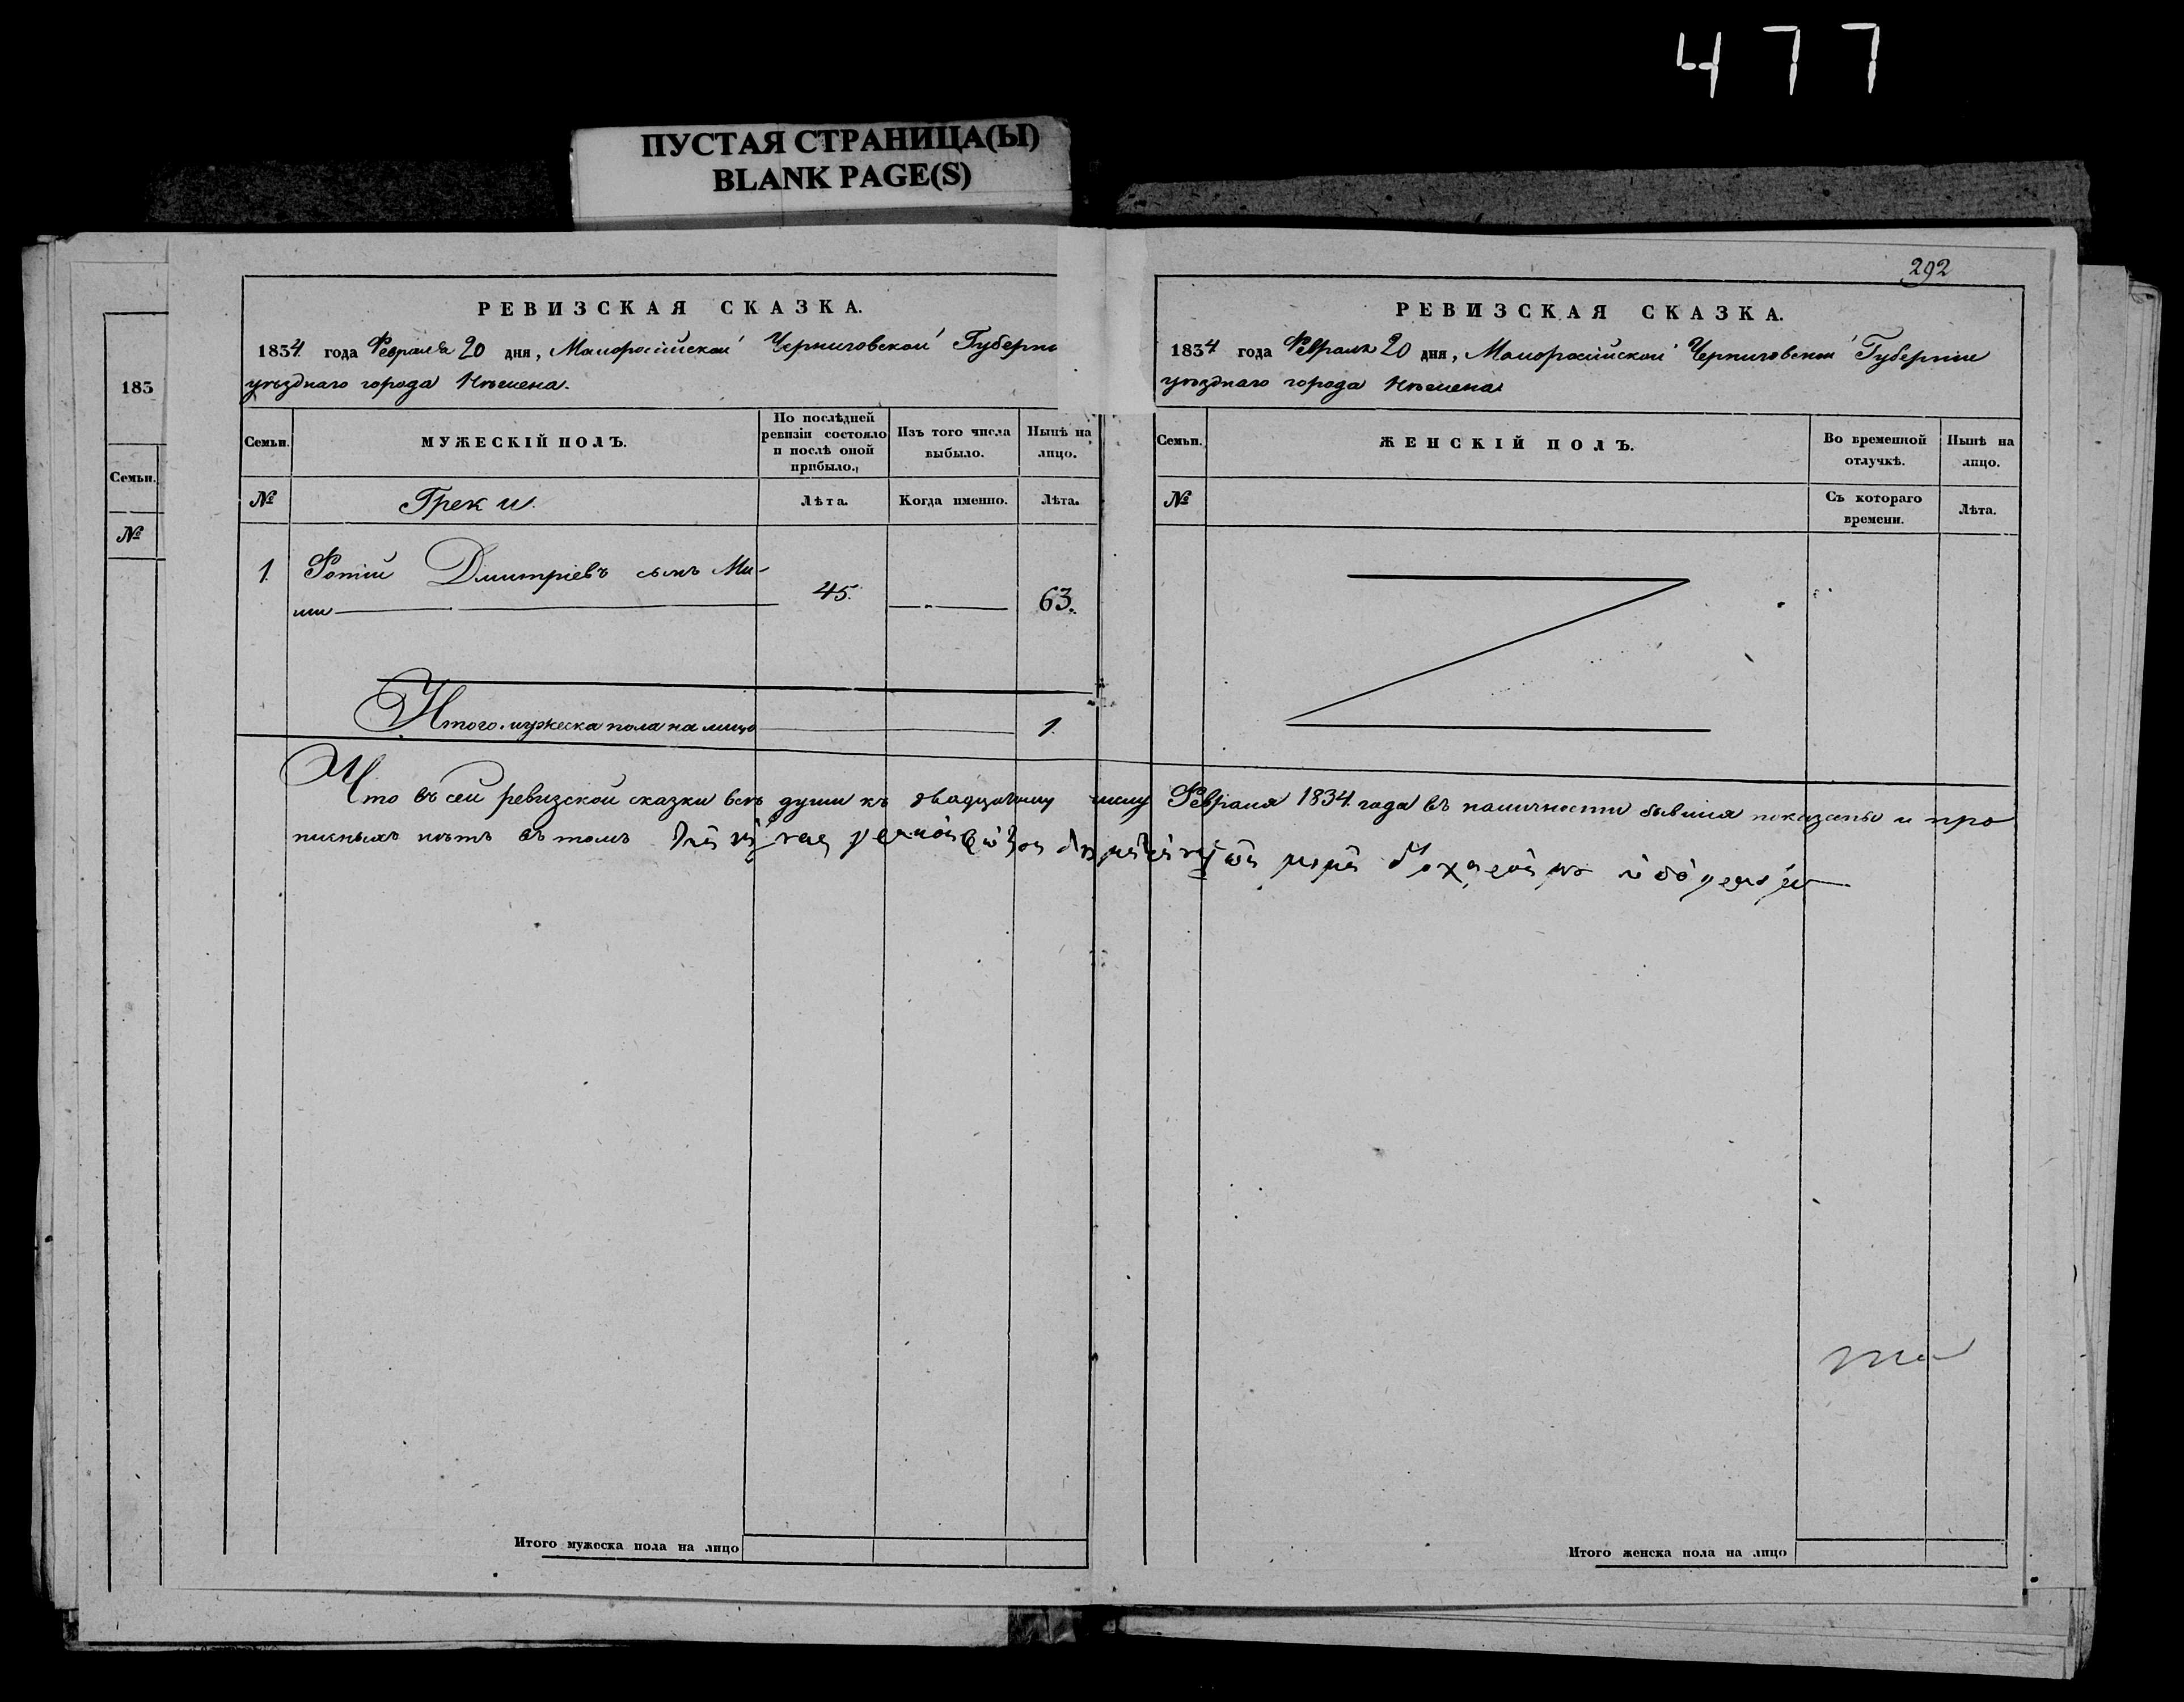 477
ПУСТАЯ СТРАНИЦА(Ы)
BLANK PAGE(S)
183
Семьи.
№
РЕВИЗСКАЯ СКАЗКА.
1834 года Февраля 20 дня, Малоросійской Черниговской Губерни
уѣзднаго города Нѣжена.
Семьи.
МУЖЕСКІЙ ПОЛЪ.
По послѣдней ревизіи состояло и послѣ оной прибыло.
Изъ того числа выбыло.
Нынѣ на лицо.
№
Греки.
Лѣта.
Когда именно.
Лѣта.
1. Фотій Дмитріевъ сынъ
45.
63.
Итого мужеска пола на лицо 1.
292
РЕВИЗСКАЯ СКАЗКА.
1834 года Февраля 20 дня, Малоросійской Черниговской Губерніи
уѣзднаго города Нѣжена
Семьи.
ЖЕНСКІЙ ПОЛЪ.
Во временной отлучкѣ.
Нынѣ на лицо.
№
Съ котораго времени.
Лѣта.
Что въ сей ревизской сказки всѣ души къ двадцатому числу Февраля 1834 года въ наличности бывшія показаны и про
писныхъ нѣтъ въ томъ
Итого мужеска пола на лицо
Итого женска пола на лицо